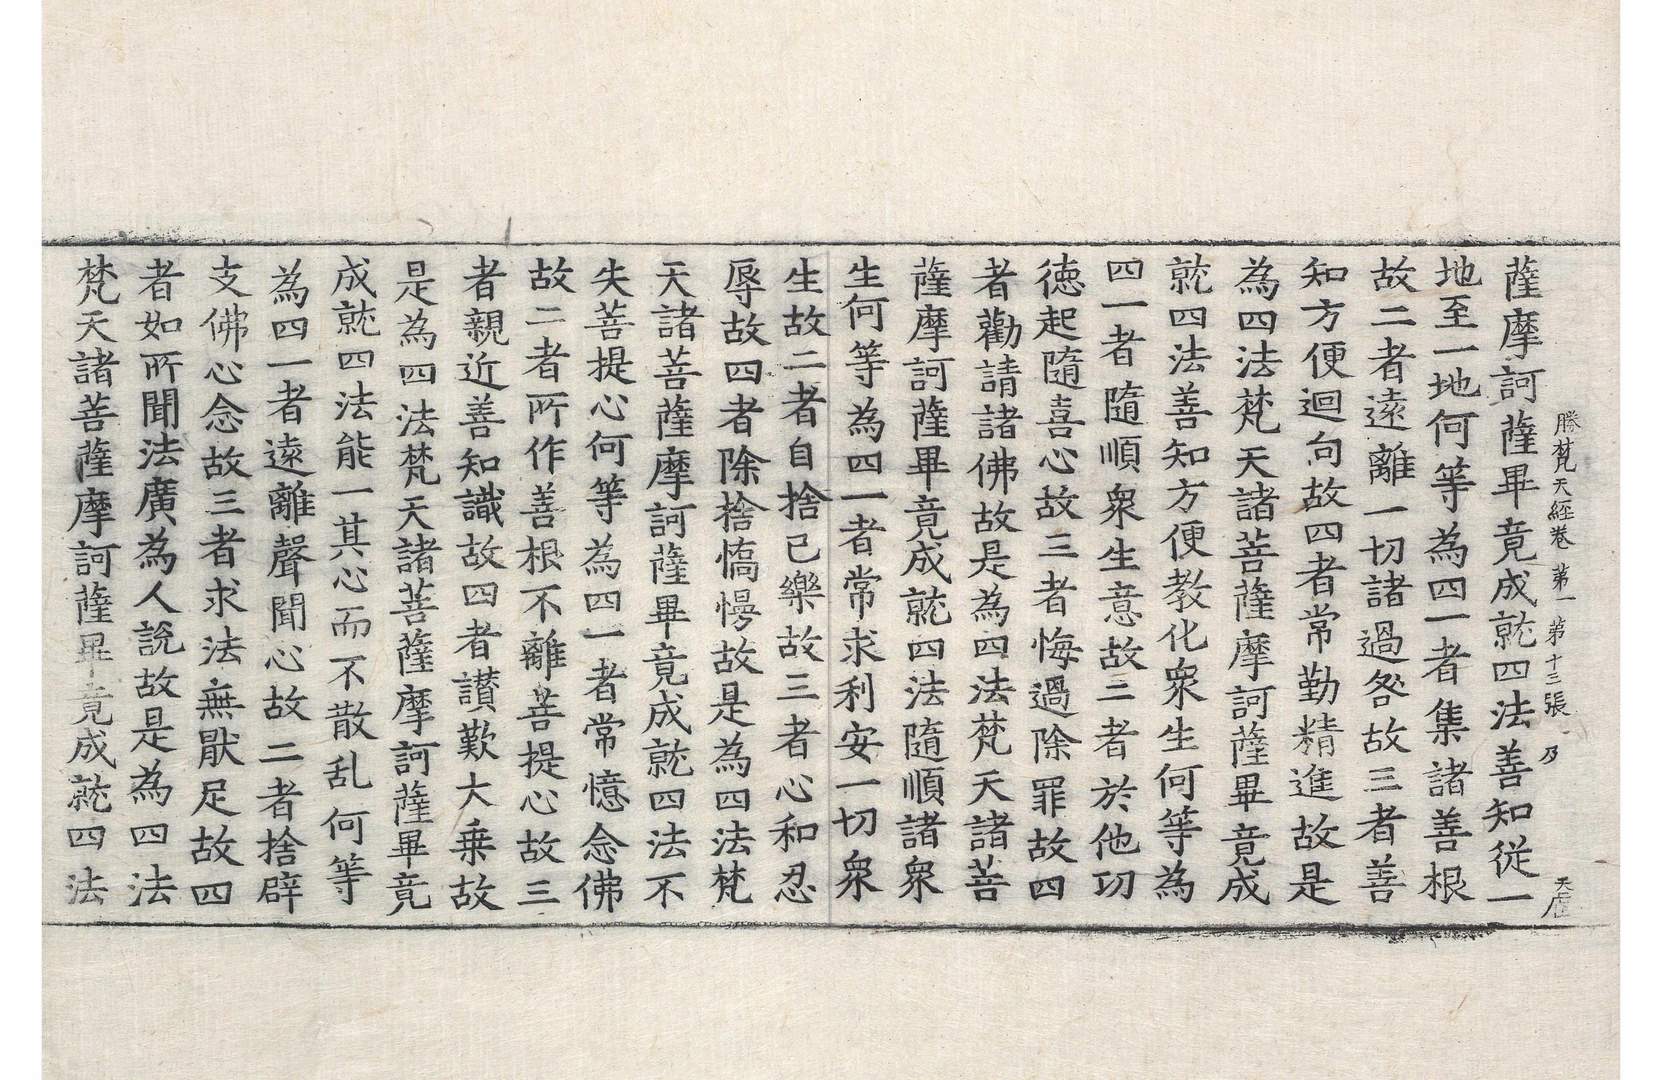 勝梵天経卷 第一 第十三張 乃
天伍
薩摩訶薩畢竟成就四法善知從一
地至一地何等為四一者集諸善根
故二者遠離一切諸過咎故三者善
知方便迴向故四者常勤精進故是
為四法梵天諸菩薩摩訶薩畢竟成
就四法善知方便教化衆生何等為
四一者隨順衆生意故二者於他功
德起隨喜心故三者悔過除罪故四
者勸請諸佛故是為四法梵天諸菩
薩摩訶薩畢竟成就四法隨順諸衆
生何等為四一者常求利安一切衆
生故二者自捨己樂故三者心和忍
辱故四者除捨憍慢故是為四法梵
天諸菩薩摩訶薩畢竟成就四法不
失菩提心何等為四一者常憶念佛
故二者所作善根不離菩提心故三
者親近善知識故四者讃歎大乗故
是為四法梵天諸菩薩摩訶薩畢竟
成就四法能一其心而不散乱何等
為四一者遠離聲聞心故二者捨辟
支佛心念故三者求法無猒足故四
者如所聞法廣為人說故是為四法
梵天諸菩薩摩訶薩畢竟成就四法